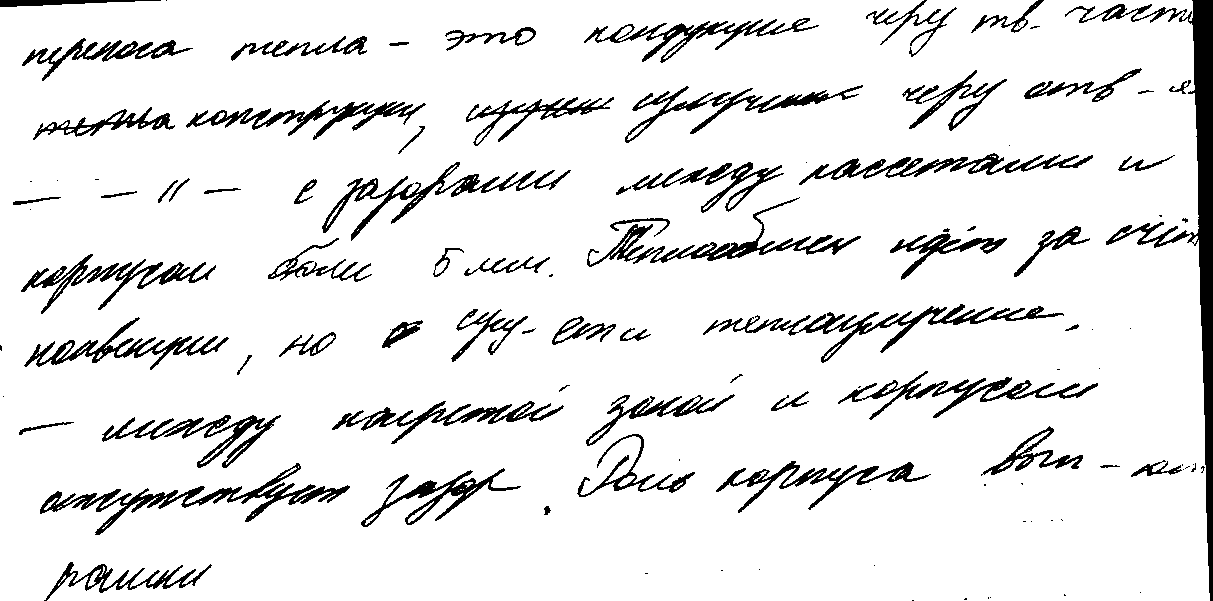 переноса тепла - это кондукция через тв. части
конструкции, излучения через отв-я
— — " — с зазорами между кассетами и
корпусом боли 5 мм. Теплообмен идёт за счёт
конвекции, но сущ-ет и теплоизлучение.
— между нагретой зоной и корпусом
отсутствует зазор. Роль корпуса вып-ют
рамки